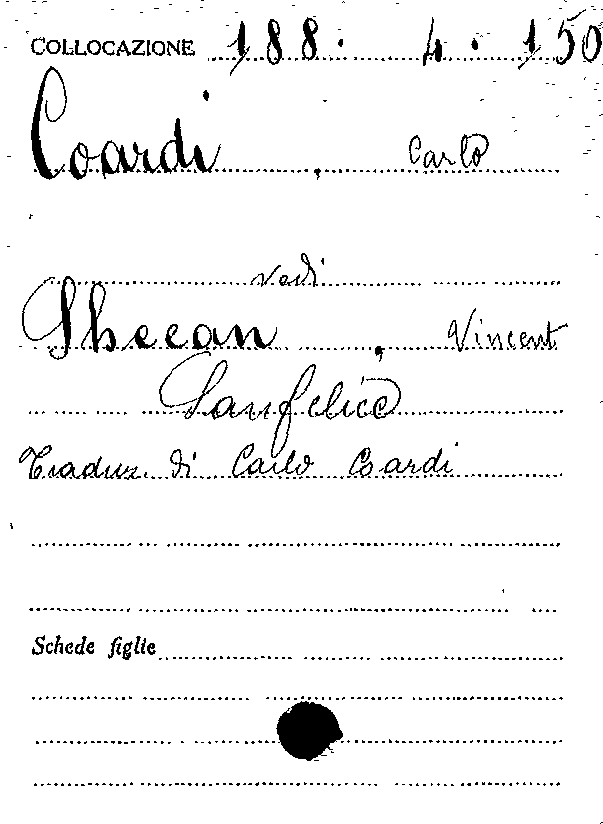 COLLOCAZIONE 188. 4. 150
Coardi, Carlo
vedi
Sheean, Vincent
Sanfelice
Traduz. di Carlo Coardi
Schede figlie